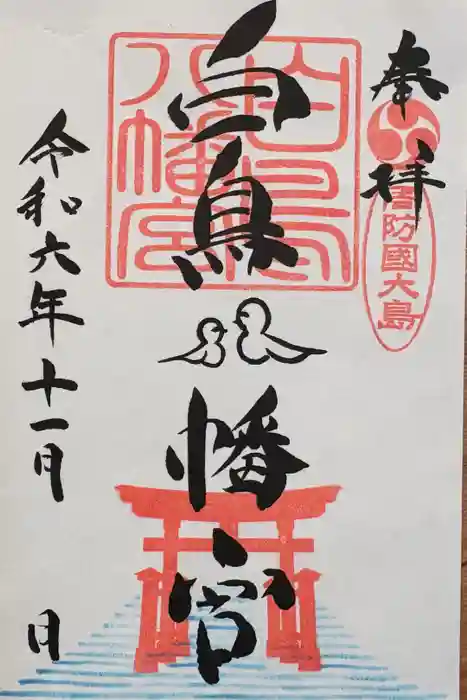 奉拝
周防國大島
白鳥八幡宮
白鳥八幡宮
令和六年十一月 日